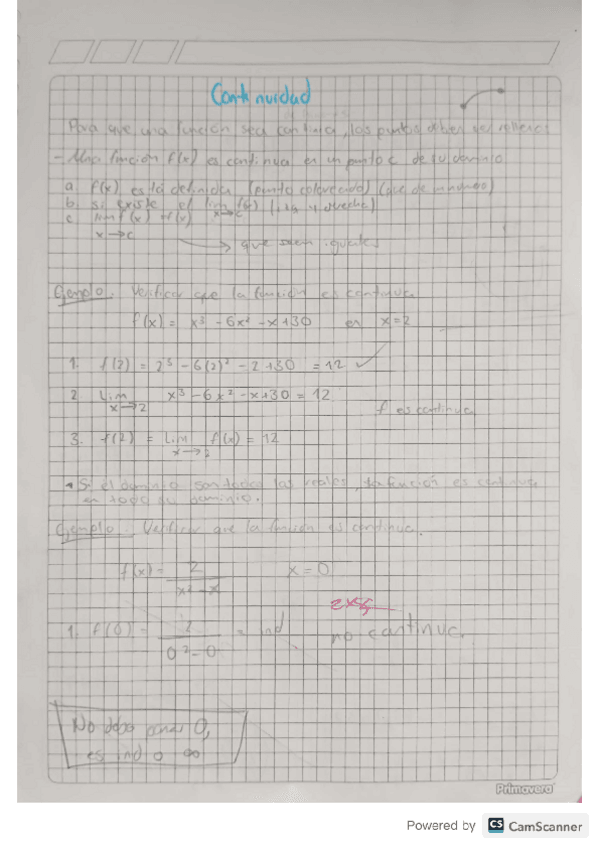 Continuidad
Para que una función sea continua, los puntos deben ser rellenos
- Una función f(x) es continua en un punto c de su dominio
a. f(x) está definida (punto coloreado)
b. si existe el lim f(x) (izq y derecha)
x→c
c lim f(x) = f(x)
x→c
→ que sean iguales
Ejemplo. Verificar que la función es continua.
f(x) = x³ - 6x² - x + 30 en x = 2
1. f(2) = 2³ - 6(2)² - 2 + 30 = 12 ✓
2 Lim x³ - 6x² - x + 30 = 12
x→2
f es continua
3. f(2) = Lim f(x) = 12
x→2
• Si el dominio son todos los reales, la función es continua
en todo su dominio.
Ejemplo. Verificar que la función es continua.
f(x) = 2 x = 0
x² - x
1. f(0) = 2 = ind no continua.
0² - 0
No debo poner 0,
es ind o ∞
Primavera
Powered by CS CamScanner